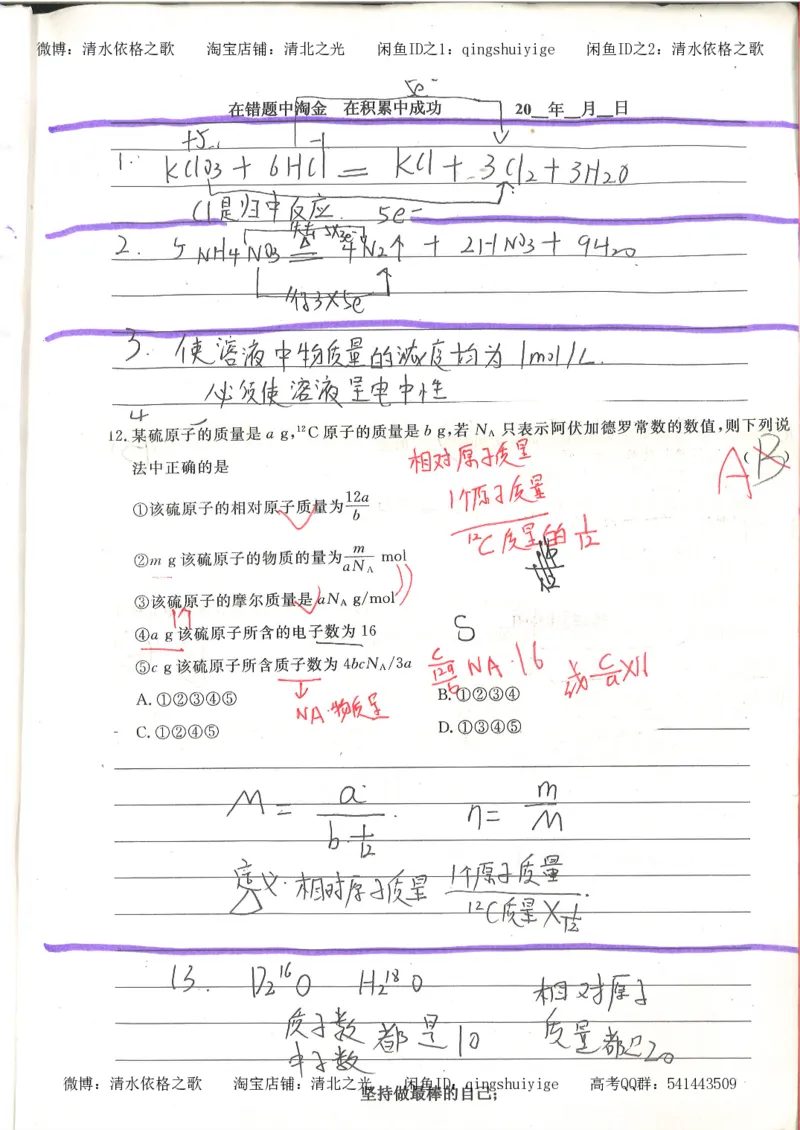 微博：清水依格之歌 淘宝店铺：清北之光 闲鱼ID之1：qingshuiyige 闲鱼ID之2：清水依格之歌
5e⁻
在错题中淘金 在积累中成功 20__年__月__日
+5 -1
1. KClO3 + 6HCl = KCl + 3Cl2 + 3H2O
Cl是归中反应. 5e⁻
失去5×3e⁻
2. 5NH4NO3 = 4N2↑ + 2HNO3 + 9H2O
得3×5e
3. 使溶液中物质量的浓度均为1mol/L.
必须使溶液呈电中性
4
12.某硫原子的质量是 a g,¹²C原子的质量是 b g,若 NA 只表示阿伏加德罗常数的数值,则下列说
法中正确的是 ( B )
A
相对原子质量
1个原子质量
¹²C质量的1/12
①该硫原子的相对原子质量为12a/b
②m g 该硫原子的物质的量为m/aNA mol
③该硫原子的摩尔质量是 aNA g/mol
④a g 该硫原子所含的电子数为 16
S
⑤c g 该硫原子所含质子数为 4bcNA/3a
c/(12a/b) NA·16 或 c/a×16
A.①②③④⑤ B.①②③④
NA·物质量
C.①②④⑤ D.①③④⑤
M = a/(b·1/12) n = m/M
定义·相对原子质量 1个原子质量/¹²C质量×1/12
13. D2¹⁶O H2¹⁸O 相对原子
质子数 都是10 质量都是20
中子数
微博：清水依格之歌 淘宝店铺：清北之光 闲鱼ID：qingshuiyige 高考QQ群：541443509
坚持做最棒的自己;